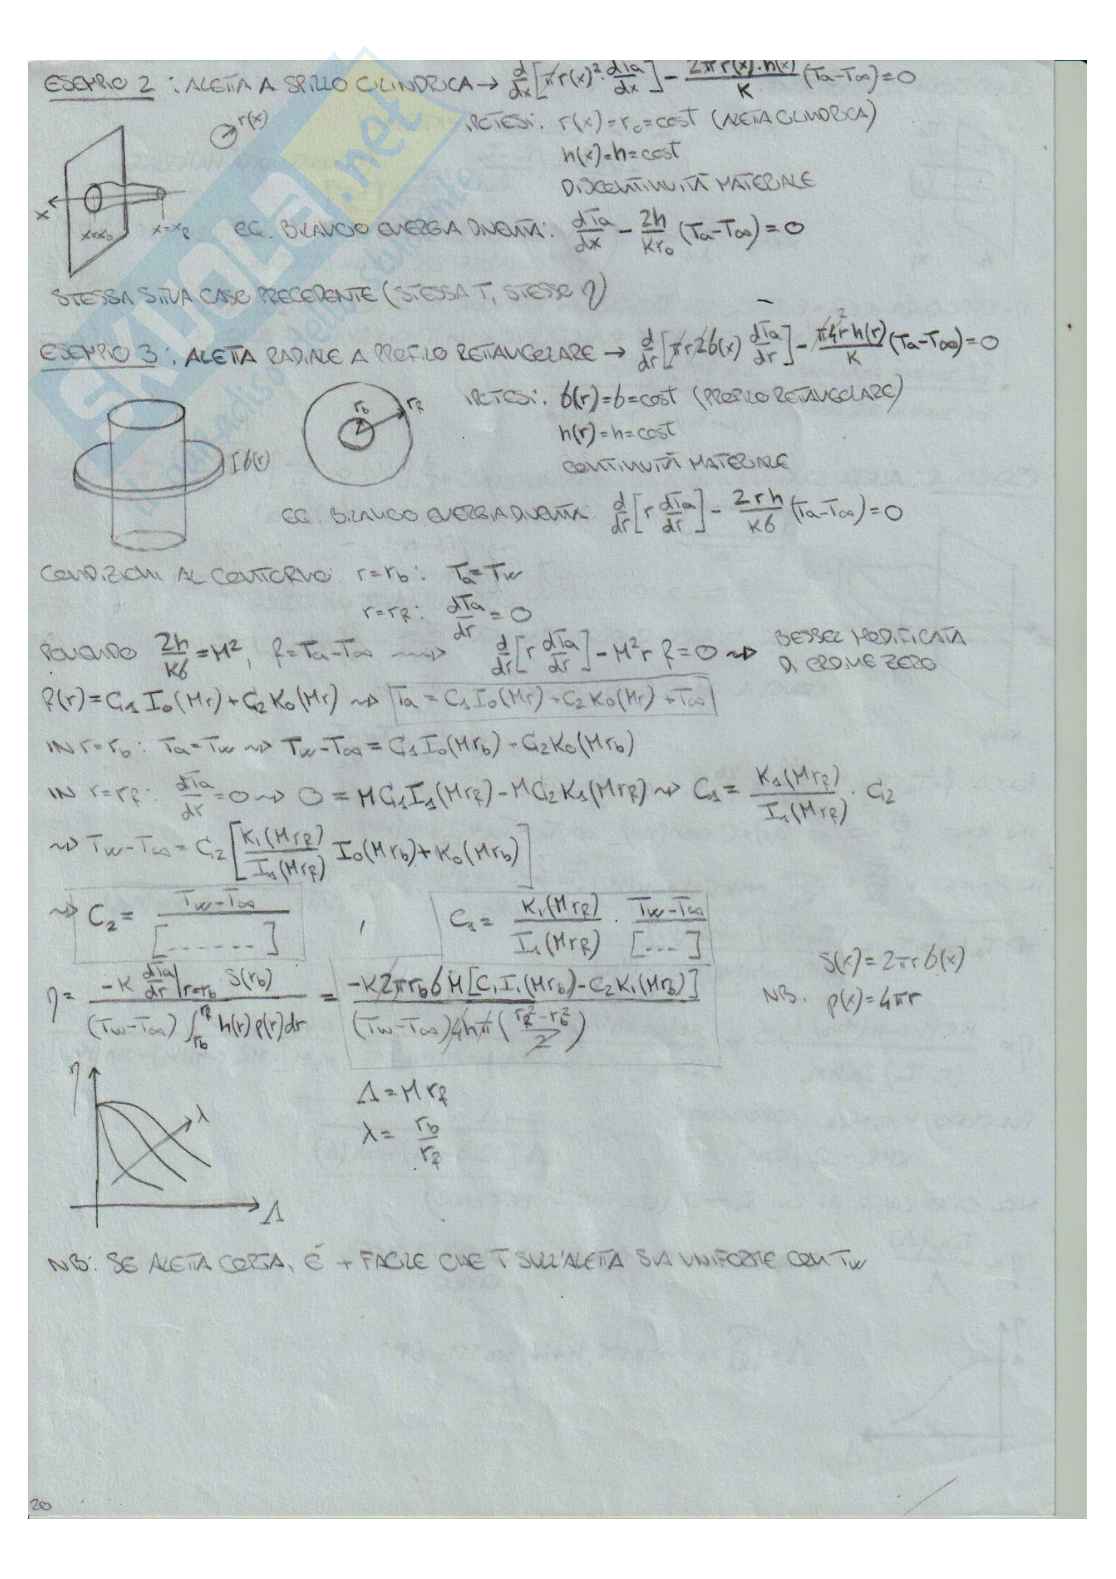 ESEMPIO 2 : ALETTA A SPILLO CILINDRICA → d/dx [π r(x)² dTa/dx] - 2π r(x)·h(x)/K (Ta-T∞) = 0
r(x)
IPOTESI: r(x) = r₀ = cost (ALETTA CILINDRICA)
h(x) = h = cost
DISCONTINUITÀ MATERIALE
x
x=x₀
x=x_f
EQ. BILANCIO ENERGIA DIVENTA: dTa/dx - 2h/Kr₀ (Ta-T∞) = 0
STESSA SITUA CASO PRECEDENTE (STESSA T, STESSO η)
ESEMPIO 3 : ALETTA RADIALE A PROFILO RETTANGOLARE → d/dr [π r 2 б(x) dTa/dr] - π 4 r h(r)/K (Ta-T∞) = 0
2
r_b
r_f
б(r)
IPOTESI: б(r) = б = cost (PROFILO RETTANGOLARE)
h(r) = h = cost
CONTINUITÀ MATERIALE
EQ. BILANCIO ENERGIA DIVENTA: d/dr [r dTa/dr] - 2rh/Kб (Ta-T∞) = 0
CONDIZIONI AL CONTORNO: r = r_b : Ta = Tw
r = r_f : dTa/dr = 0
PONENDO 2h/Kб = M², f = Ta-T∞ ⇝ d/dr [r dTa/dr] - M² r f = 0 ⇝ BESSEL MODIFICATA
DI ORDINE ZERO
f(r) = C₁ I₀(Mr) + C₂ K₀(Mr) ⇝ Ta = C₁ I₀(Mr) + C₂ K₀(Mr) + T∞
IN r = r_b : Ta = Tw ⇝ Tw-T∞ = C₁ I₀(Mr_b) - C₂ K₀(Mr_b)
IN r = r_f : dTa/dr = 0 ⇝ 0 = M C₁ I₁(Mr_f) - M C₂ K₁(Mr_f) ⇝ C₁ = K₁(Mr_f)/I₁(Mr_f) · C₂
⇝ Tw-T∞ = C₂ [K₁(Mr_f)/I₁(Mr_f) I₀(Mr_b) + K₀(Mr_b)]
⇝ C₂ = Tw-T∞/[.......] , C₁ = K₁(Mr_f)/I₁(Mr_f) · Tw-T∞/[....]
S(x) = 2πr б(x)
NB. p(x) = 4πr
η = -K dTa/dr|r=r_b S(r_b) / (Tw-T∞) ∫_{r_b}^{r_f} h(r) p(r) dr = -K 2π r_b б M [C₁ I₁(Mr_b) - C₂ K₁(Mr_b)] / (Tw-T∞) 4hπ (r_f² - r_b²/2)
η
λ
Λ
Λ = M r_f
λ = r_b/r_f
NB: SE ALETTA CORTA, È + FACILE CHE T SULL'ALETTA SIA UNIFORME CON Tw
20
SKUOLA.net